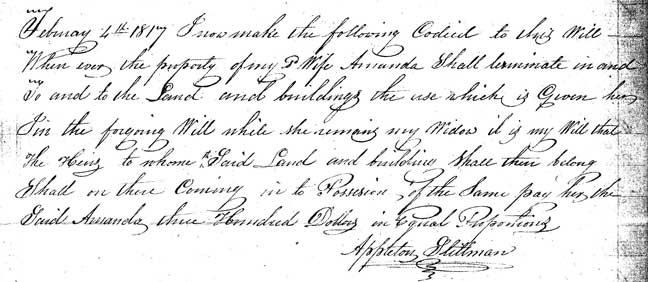 Februay 4th 1817 I now make the following Codicil to this Will
When ever the property of my Wife Amanda Shall terminate in and
To and to the Land and buildings the use which is Given her
in the forgoing Will while she remains my Widow it is my Will that
The Heirs to whome Said Land and buildings Shall then belong
Shall on there Coming in to Possesion of the Same pay her the
Said Amanda three Hundred Dollars in Equal Propotions
Appleton Stillman